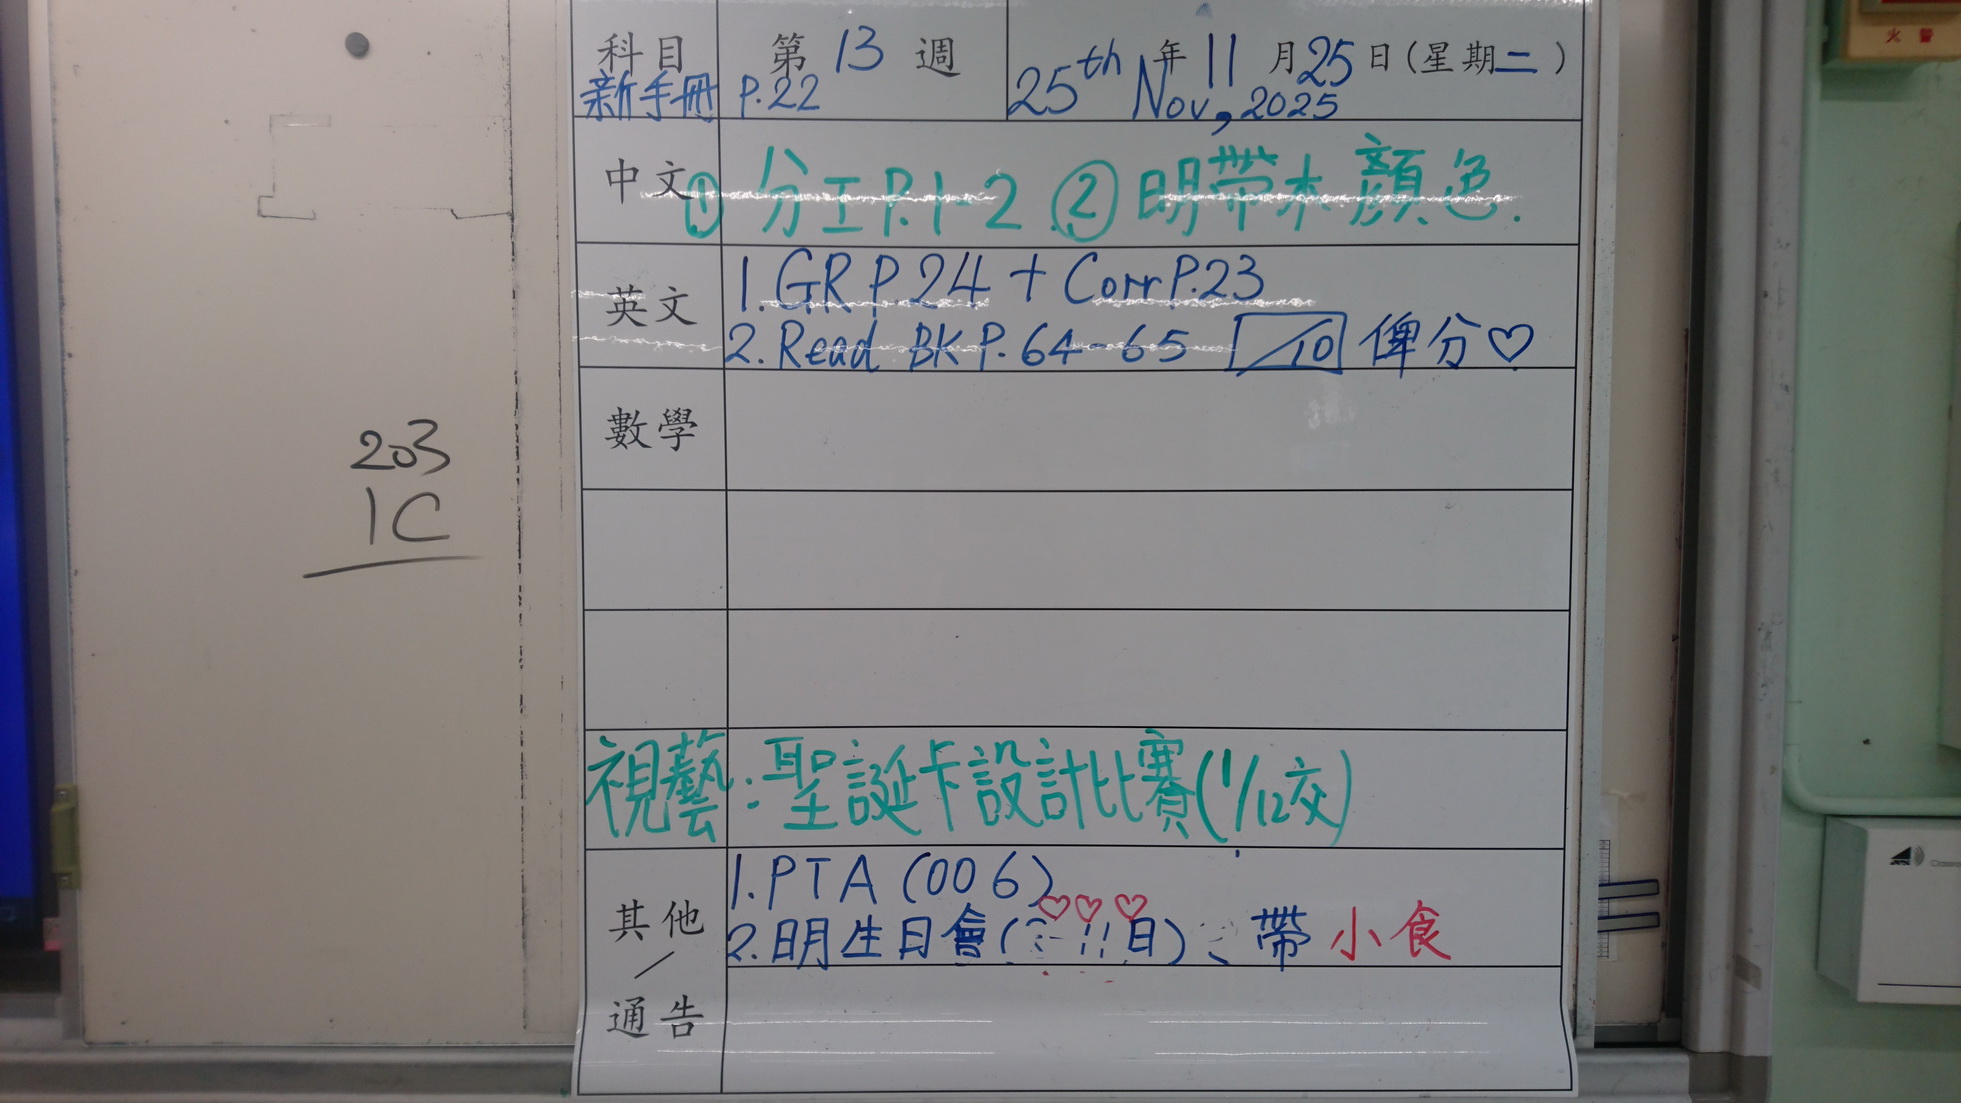 科目 第13週 年11月25日(星期二)
新手冊 P.22 25th Nov, 2025
中文 ① 分工P.1-2 ② 明帶木顏色.
英文 1. GR P.24 + Corr P.23
2. Read BK P. 64-65 /10 俾分♡
數學
視藝:聖誕卡設計比賽(1/12交)
其他/通告 1. PTA (006)
2. 明生日會( 日)、帶小食
203
1C
火警